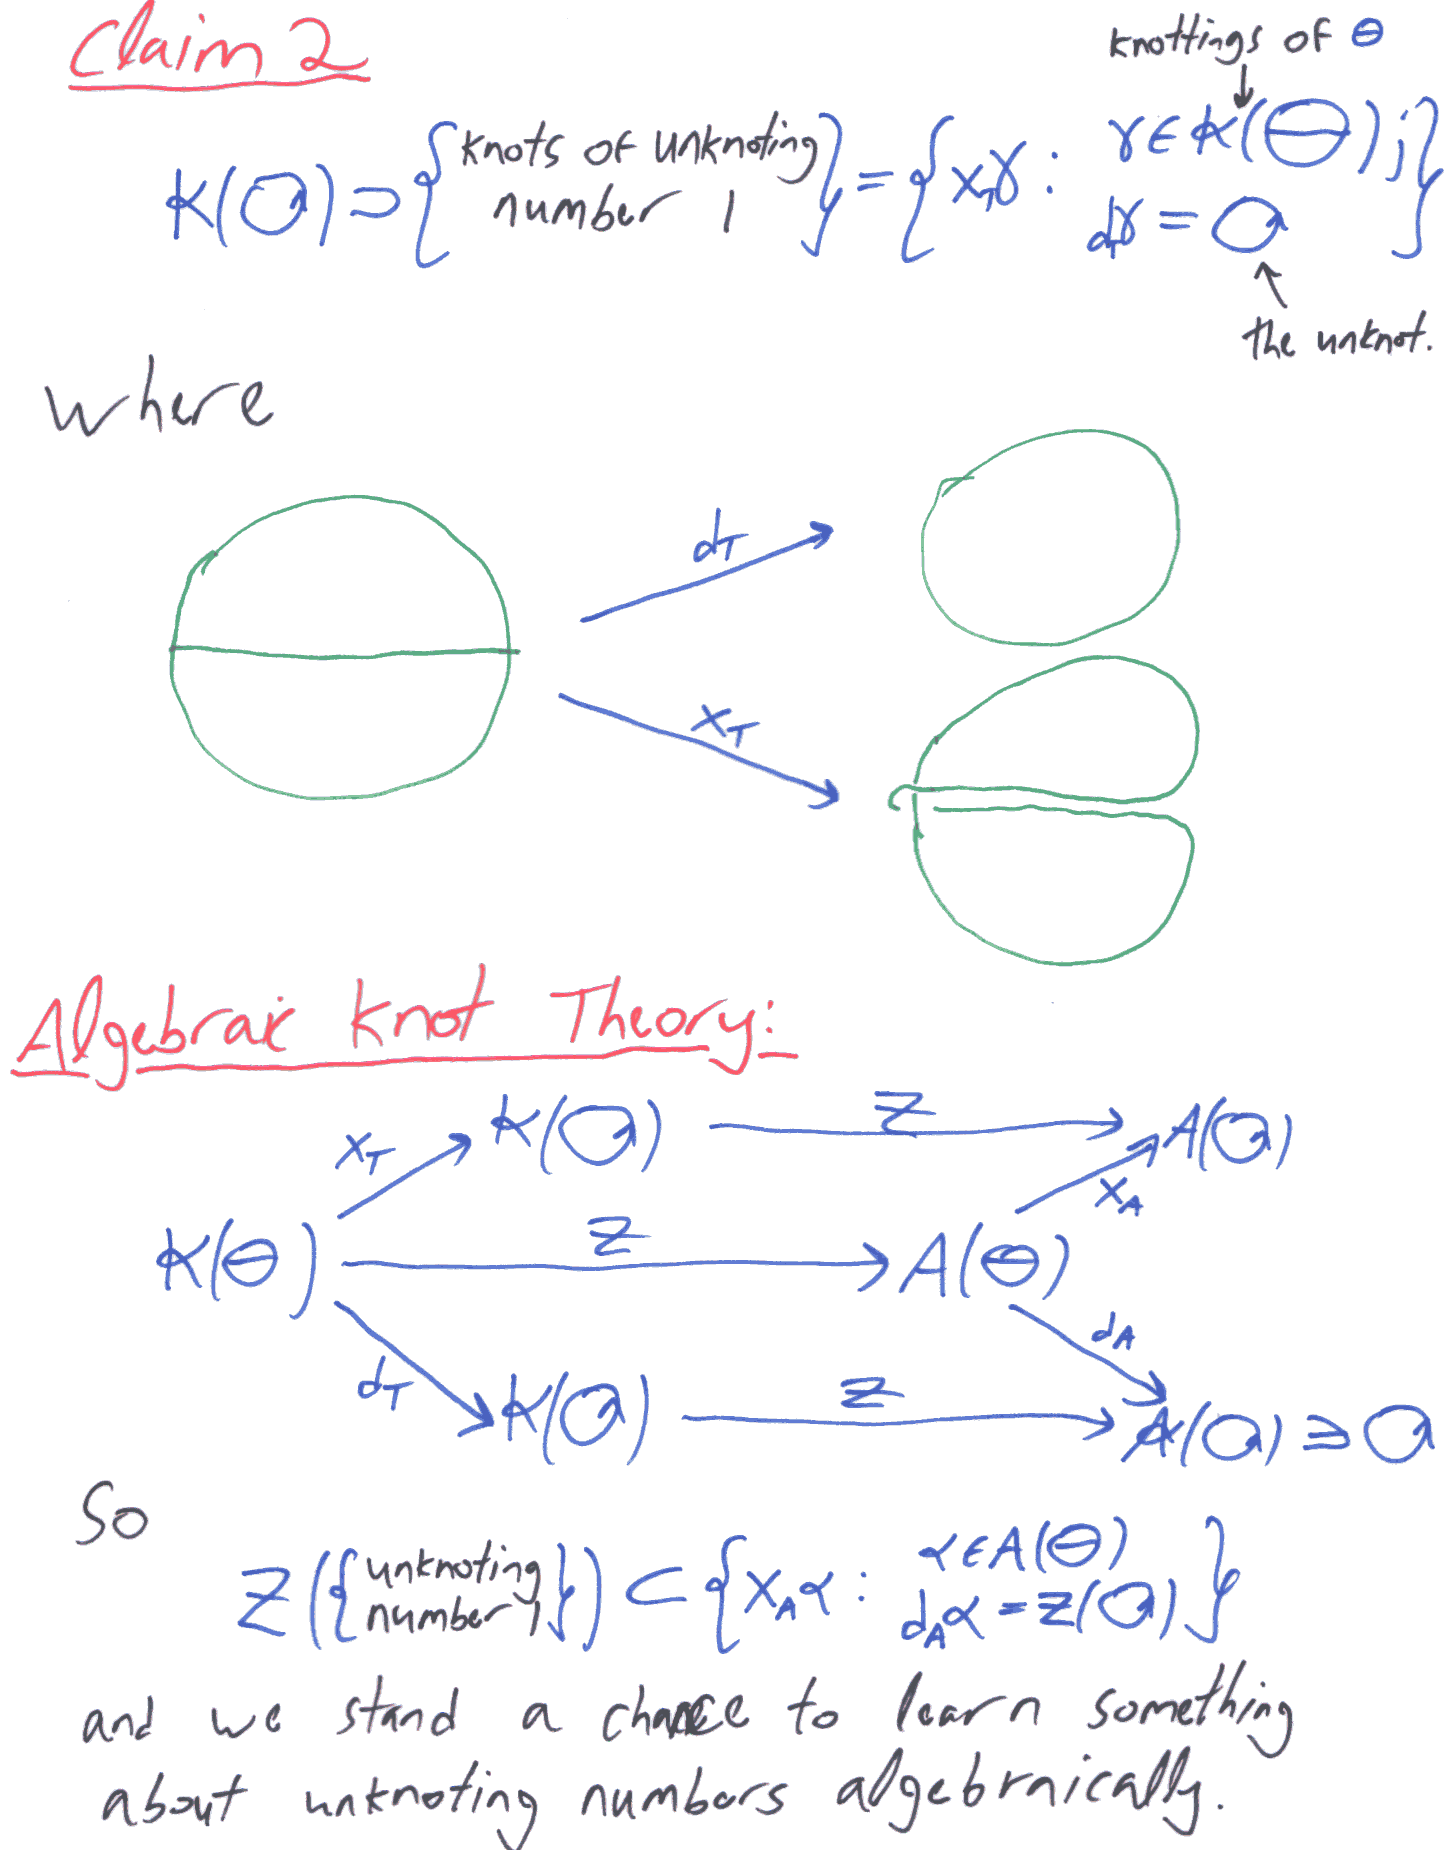 Claim 2
knottings of Θ
K(O) ⊃ {knots of unknoting number 1} = {x_T γ : γ ∈ K(Θ); d_T γ = O}
the unknot.
where
d_T
x_T
Algebraic Knot Theory:
K(O) Z A(O)
x_T x_A
K(Θ) Z A(Θ)
d_T d_A
K(O) Z A(O) ∋ O
So
Z({unknoting number 1}) ⊂ {x_A α : α ∈ A(Θ) d_A α = Z(O)}
and we stand a chance to learn something
about unknoting numbers algebraically.